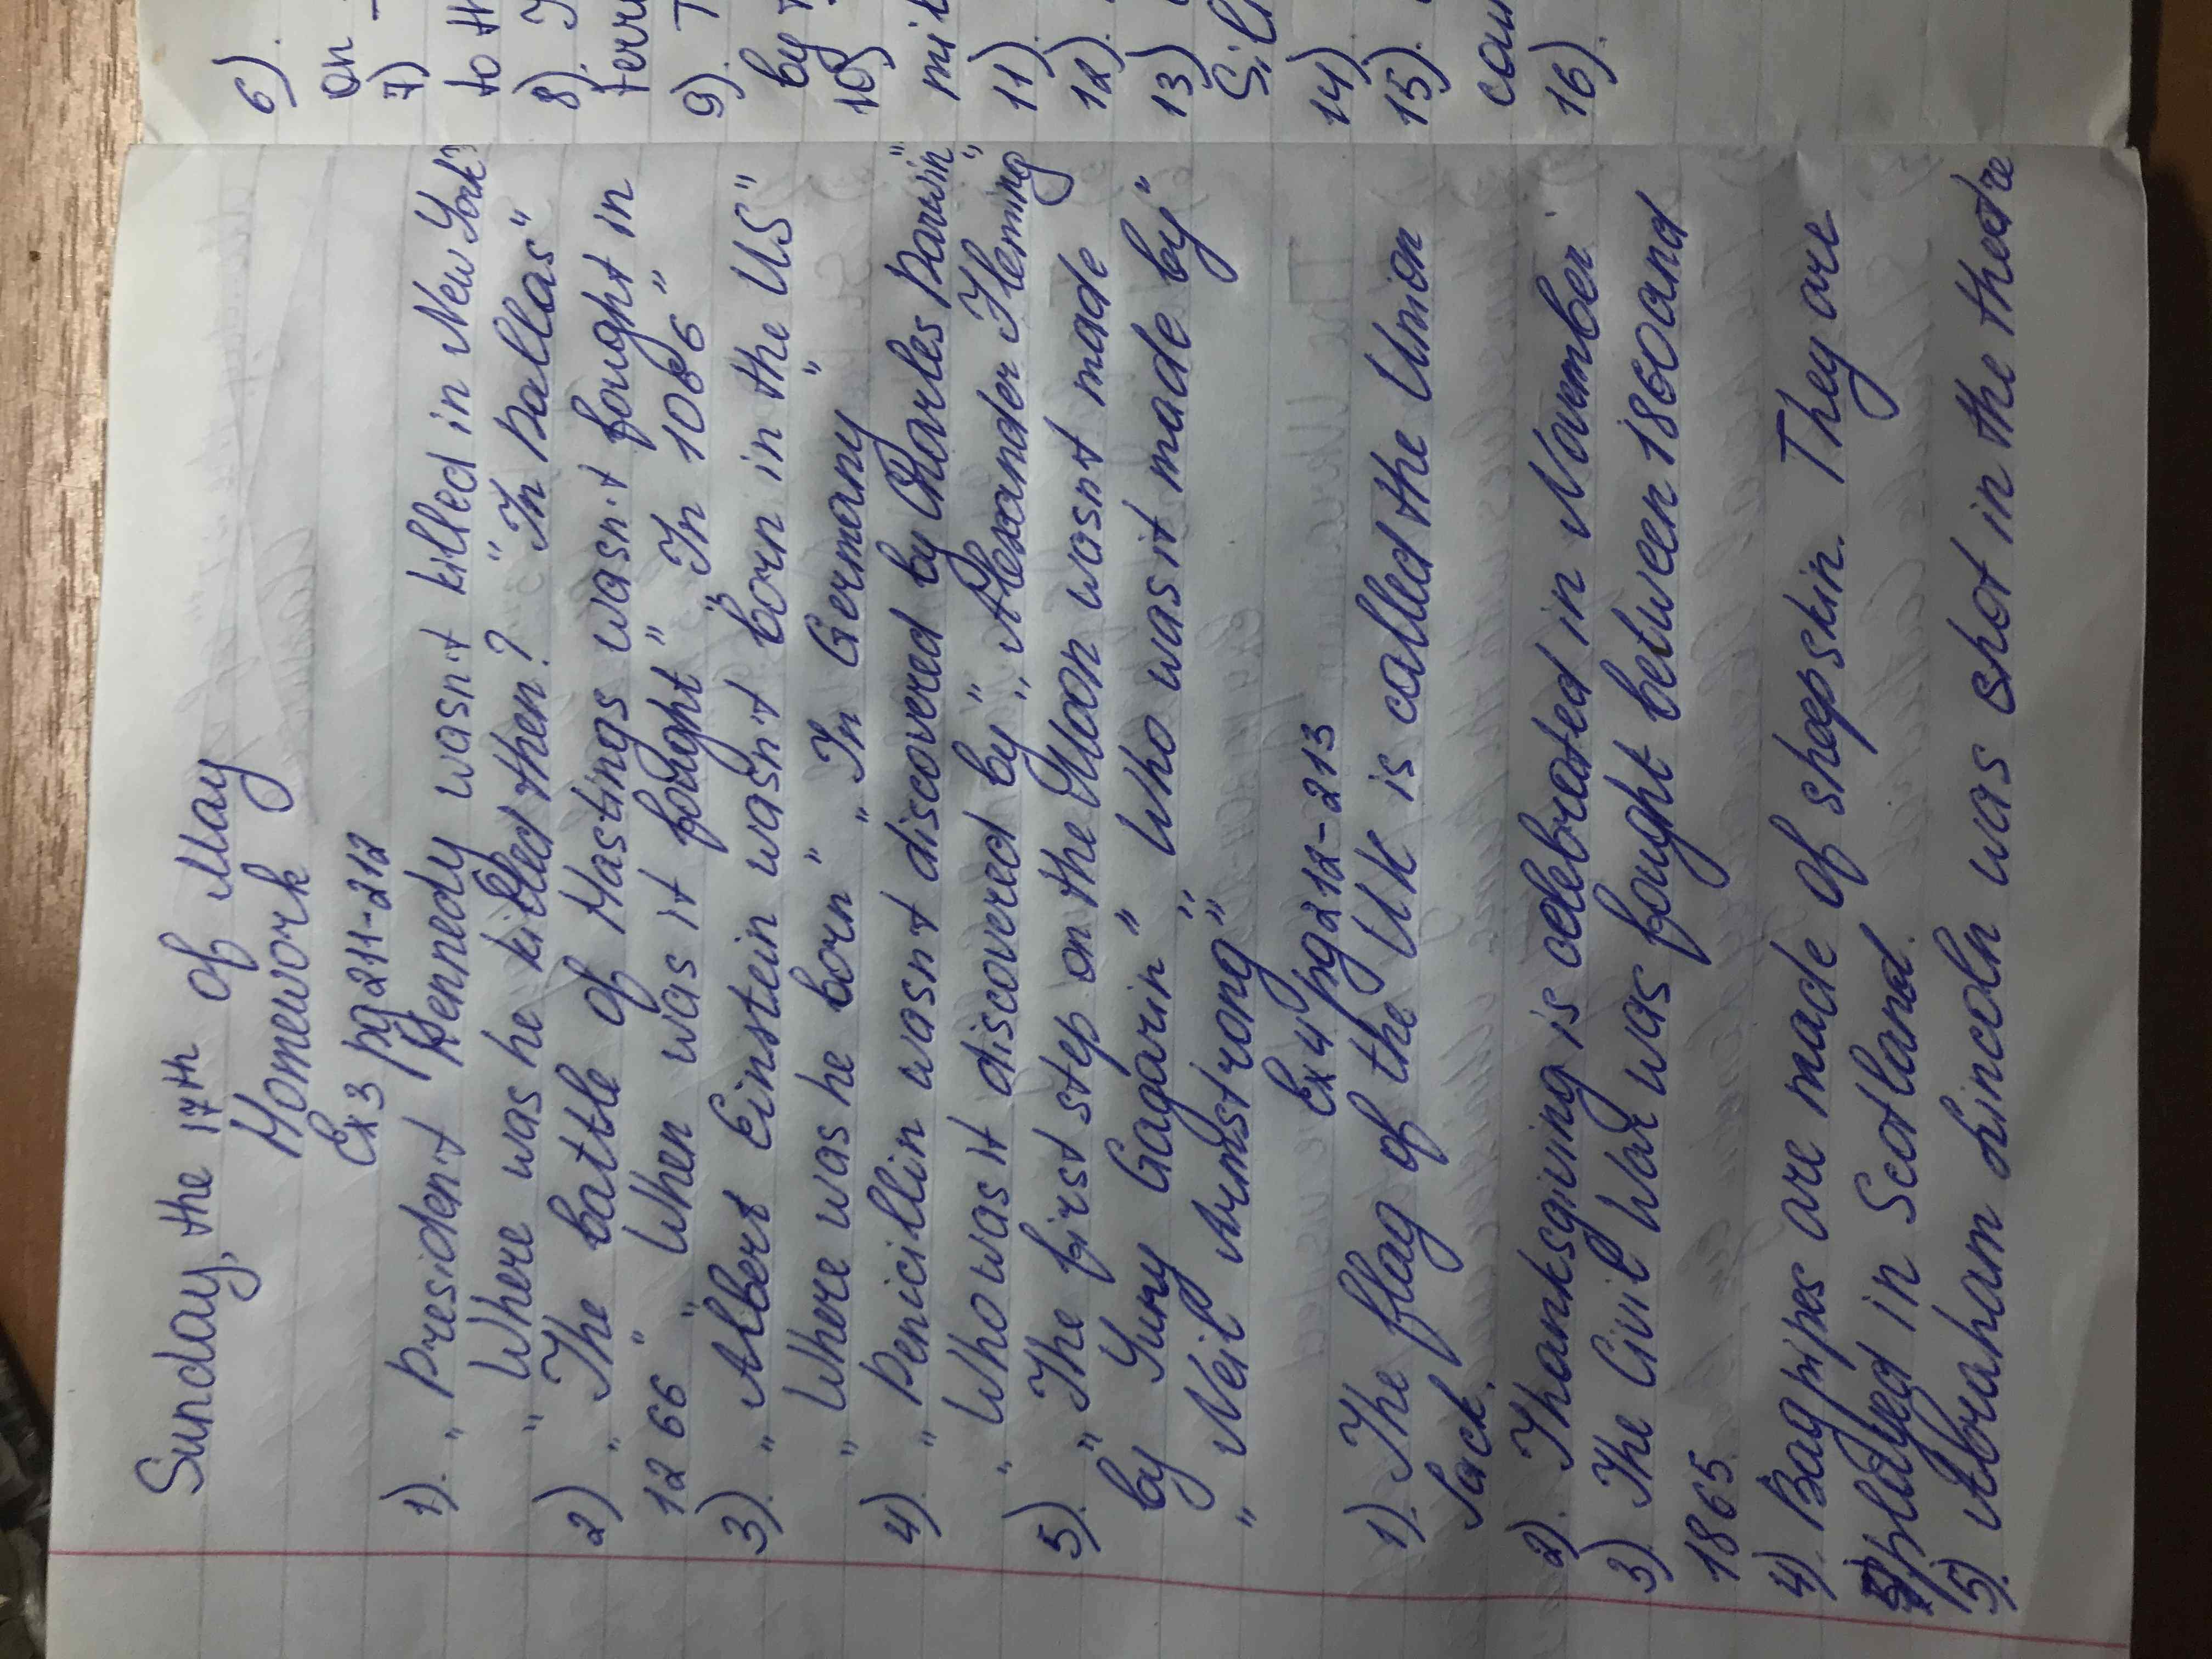 Sunday, the 17th of May
Homework
Ex 3 pg 211-212
1). „ President Kennedy wasn't killed in New York"
„ Where was he killed then? " "In Dallas"
2) „ The battle of Hastings wasn't fought in
1266 " " When was it fought " " In 1066 "
3). „ Albert Einstein wasn't born in the US "
„ Where was he born " „ In Germany "
4) „ Penicillin wasnt discovered by Charles Darwin "
„ Who was it discovered by " „ Alexander Fleming "
5). „ The first step on the Moon wasnt made
by Yury Gagarin " " Who was it made by "
„ Neil Armstrong "
Ex 4 pg 212-213
1). The flag of the UK is called the Union
Jack.
2). Thanksgiving is celebrated in November
3). The Civil War was fought between 1860 and
1865.
4). Bagpipes are made of sheepskin. They are
played in Scotland.
5). Abraham Lincoln was shot in the theatre
6).
on
7)
to th
8).
terri
9). T
by
10)
mil
11)
12).
13)
Sil
14)
15).
coun
16).